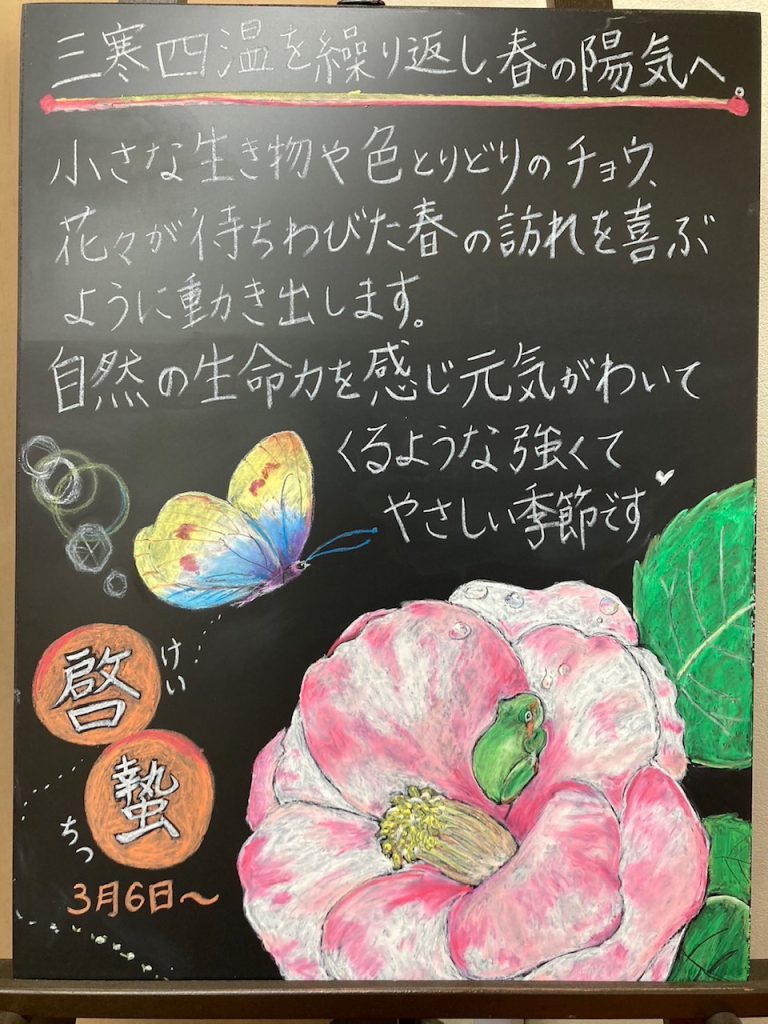 三寒四温を繰り返し、春の陽気へ。
小さな生き物や色とりどりのチョウ、
花々が待ちわびた春の訪れを喜ぶ
ように動き出します。
自然の生命力を感じ元気がわいて
くるような強くて
やさしい季節です
啓蟄
けいちつ
3月6日〜